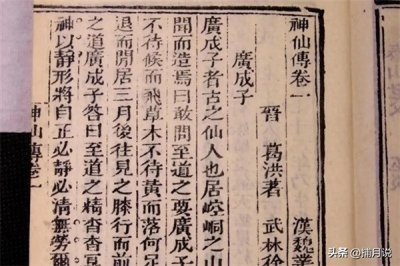 神仙傳卷一 漢魏叢
晉 葛洪著 武林徐
廣成子
廣成子者古之仙人也居崆峒之山
聞而造焉曰敢問至道之要廣成子
不待候而飛草木不待黃而落何足
退而閒居三月後往見之膝行而前
之道廣成子答曰至道之精杳杳
神以靜形將自正必靜必清無勞爾
神仙傳卷一
头条 @捕月说